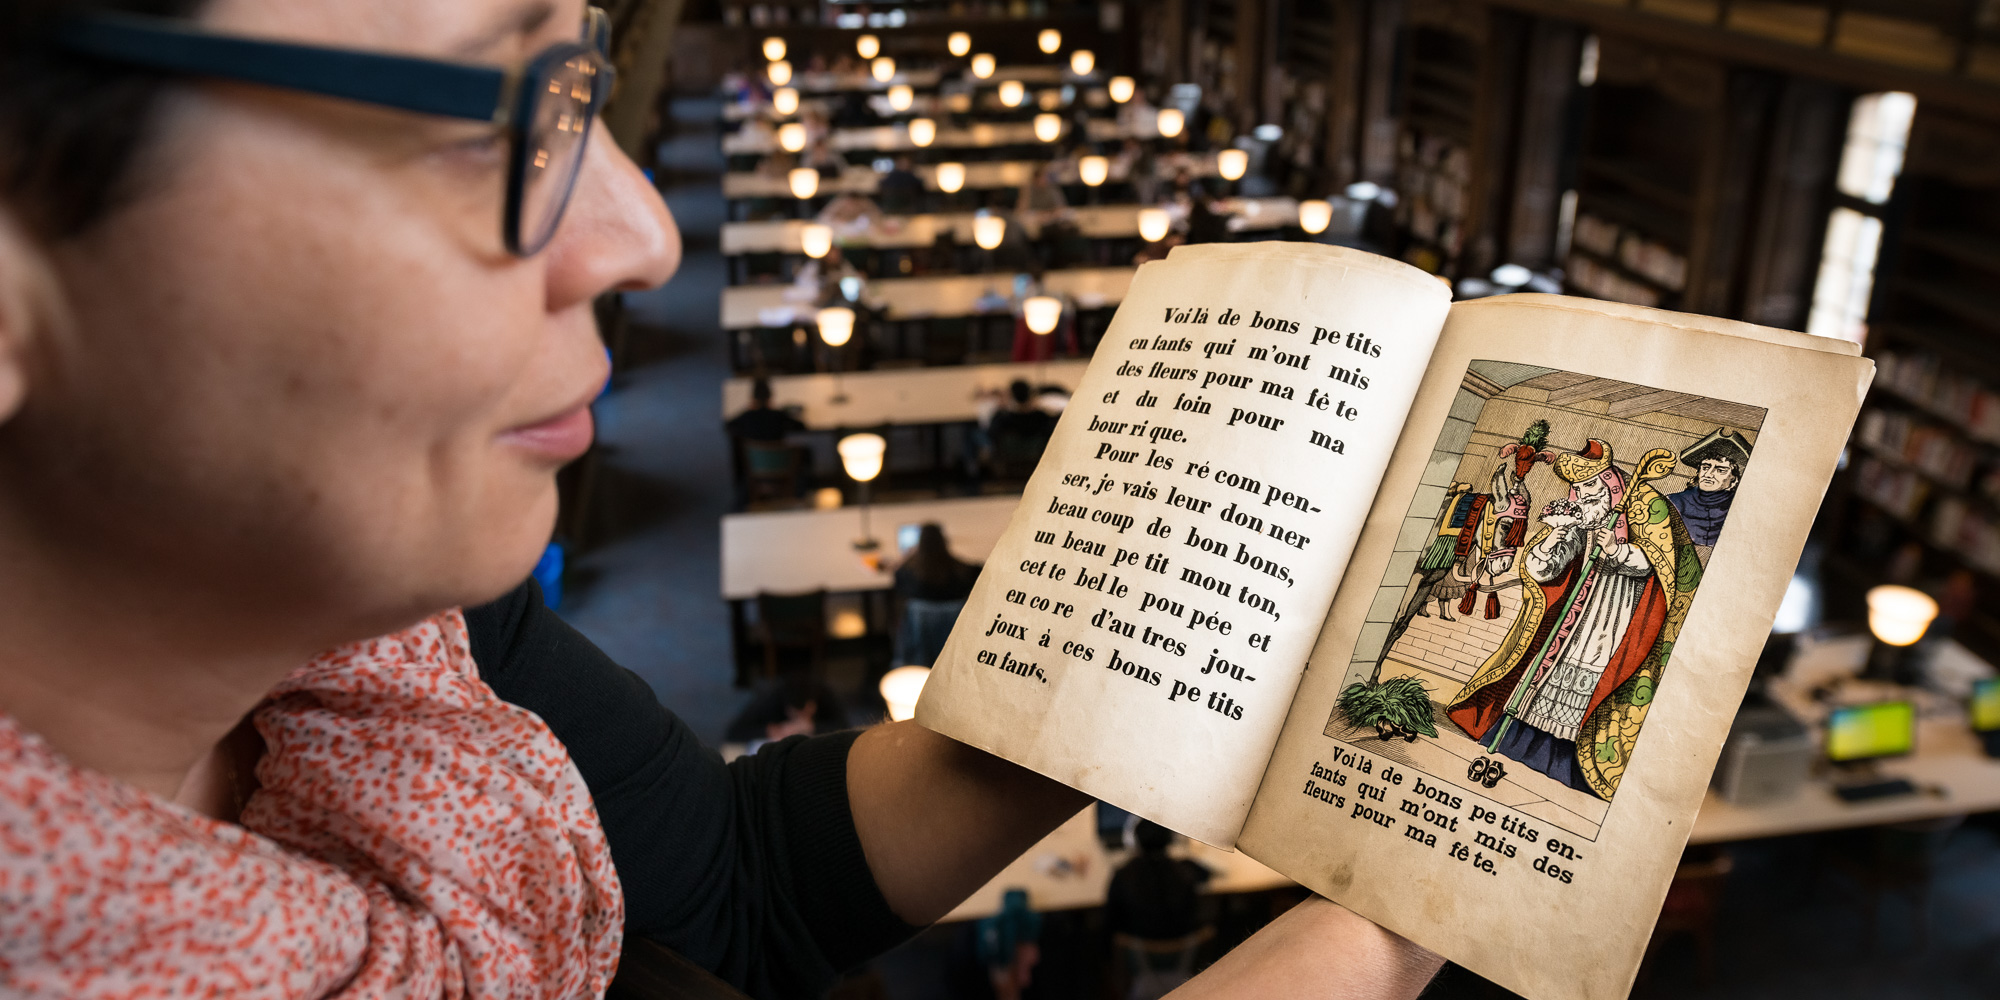 Voi là de bons pe tits
en fants qui m'ont mis
des fleurs pour ma fê te
et du foin pour ma
bour ri que.
Pour les ré com pen-
ser, je vais leur don ner
beau coup de bon bons,
un beau pe tit mou ton,
cet te bel le pou pée et
en co re d'au tres jou-
joux à ces bons pe tits
en fants.
Voi là de bons pe tits en-
fants qui m'ont mis des
fleurs pour ma fê te.